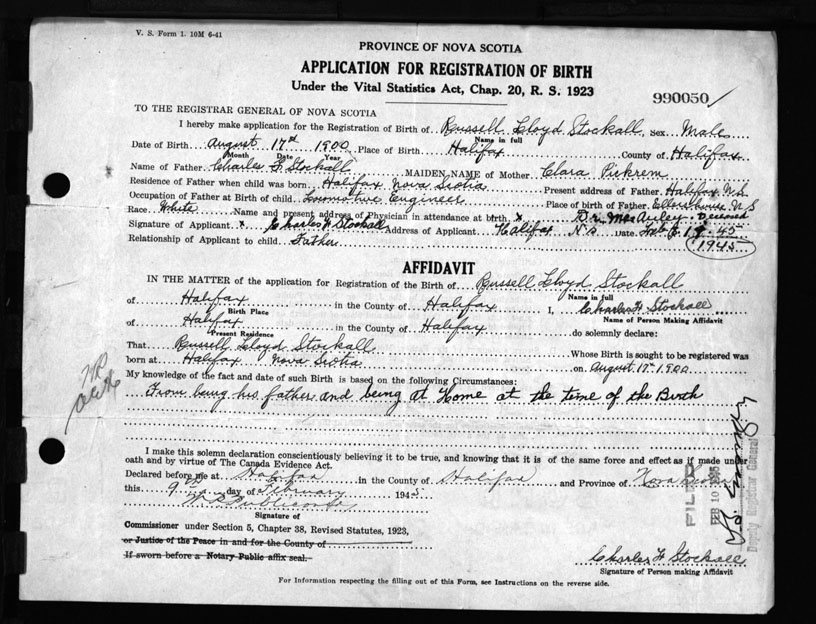 V. S. Form 1. 10M 6-41
PROVINCE OF NOVA SCOTIA
APPLICATION FOR REGISTRATION OF BIRTH
Under the Vital Statistics Act, Chap. 20, R. S. 1923
990050
TO THE REGISTRAR GENERAL OF NOVA SCOTIA
I hereby make application for the Registration of Birth of Russell Lloyd Stockall Sex Male
Name in full
Date of Birth August 17th 1900 Place of Birth Halifax County of Halifax
Month Date Year
Name of Father Charles F Stockall MAIDEN NAME of Mother Clara Pickrem
Residence of Father when child was born Halifax Nova Scotia Present address of Father Halifax N.S.
Occupation of Father at Birth of child Locomotive Engineer Place of birth of Father N S
Race White Name and present address of Physician in attendance at birth x Dr. MacAuley - Deceased
Signature of Applicant x Charles F Stockall Address of Applicant Halifax N.S. Date Feb 9 1945
Relationship of Applicant to child Father
(1945)
AFFIDAVIT
IN THE MATTER of the application for Registration of the Birth of Russell Lloyd Stockall
Name in full
of Halifax in the County of Halifax I, Charles F Stockall
Birth Place Name of Person Making Affidavit
of Halifax in the County of Halifax do solemnly declare:
Present Residence
That Russell Lloyd Stockall Whose Birth is sought to be registered was
born at Halifax Nova Scotia on August 17th 1900
My knowledge of the fact and date of such Birth is based on the following Circumstances:
From being his father and being at Home at the time of the Birth
I make this solemn declaration conscientiously believing it to be true, and knowing that it is of the same force and effect as if made under
oath and by virtue of The Canada Evidence Act.
Declared before me at Halifax in the County of Halifax and Province of Nova Scotia
this 9th day of February 1945
Signature of
Commissioner under Section 5, Chapter 38, Revised Statutes, 1923,
or Justice of the Peace in and for the County of
If sworn before a Notary Public affix seal.
Charles F Stockall
Signature of Person making Affidavit
For Information respecting the filling out of this Form, see Instructions on the reverse side.
FILED
FEB 10 1945
Deputy Registrar General